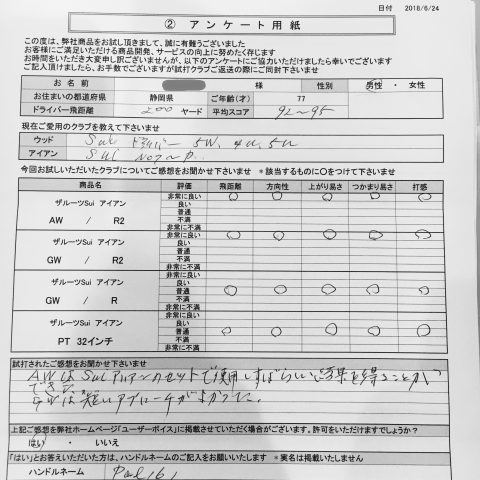 日付 2018/6/24
② アンケート用紙
この度は、弊社商品をお試し頂きまして、誠に有難うございました
お客様にご満足いただける商品開発、サービスの向上に努めたく存じます
お時間をいただき大変申し訳ございませんが、以下のアンケートにご協力いただけましたら幸いでございます
ご記入頂けましたら、お手数でございますが試打クラブご返送の際にご同封下さいませ
お名前 様 性別 男性 ・ 女性
お住まいの都道府県 静岡県 ご年齢(才) 77
ドライバー飛距離 200 ヤード 平均スコア 92〜95
現在ご愛用のクラブを教えて下さいませ
ウッド Sui ドライバー 5W, 4U, 5U
アイアン Sui NO7〜P
今回お試しいただいたクラブについてご感想をお聞かせ下さいませ *該当するものに○をつけて下さいませ
商品名 評価 飛距離 方向性 上がり易さ つかまり易さ 打感
ザルーツSui アイアン
AW / R2
非常に良い
良い
普通
不満
非常に不満
ザルーツSui アイアン
GW / R2
非常に良い
良い
普通
不満
非常に不満
ザルーツSui アイアン
GW / R
非常に良い
良い
普通
不満
非常に不満
ザルーツSui アイアン
PT 32インチ
非常に良い
良い
普通
不満
非常に不満
試打されたご感想をお聞かせ下さいませ
AWはSuiアイアンのセットで使用しすばらしい結果を得ることが
できた
GWは短いアプローチがよかった。
上記ご感想を弊社ホームページ「ユーザーボイス」に掲載させていただく場合がございます。許可をいただけますでしょうか?
はい ・ いいえ
「はい」とお答えいただいた方は、ハンドルネームのご記入をお願いいたします *実名は掲載いたしません
ハンドルネーム